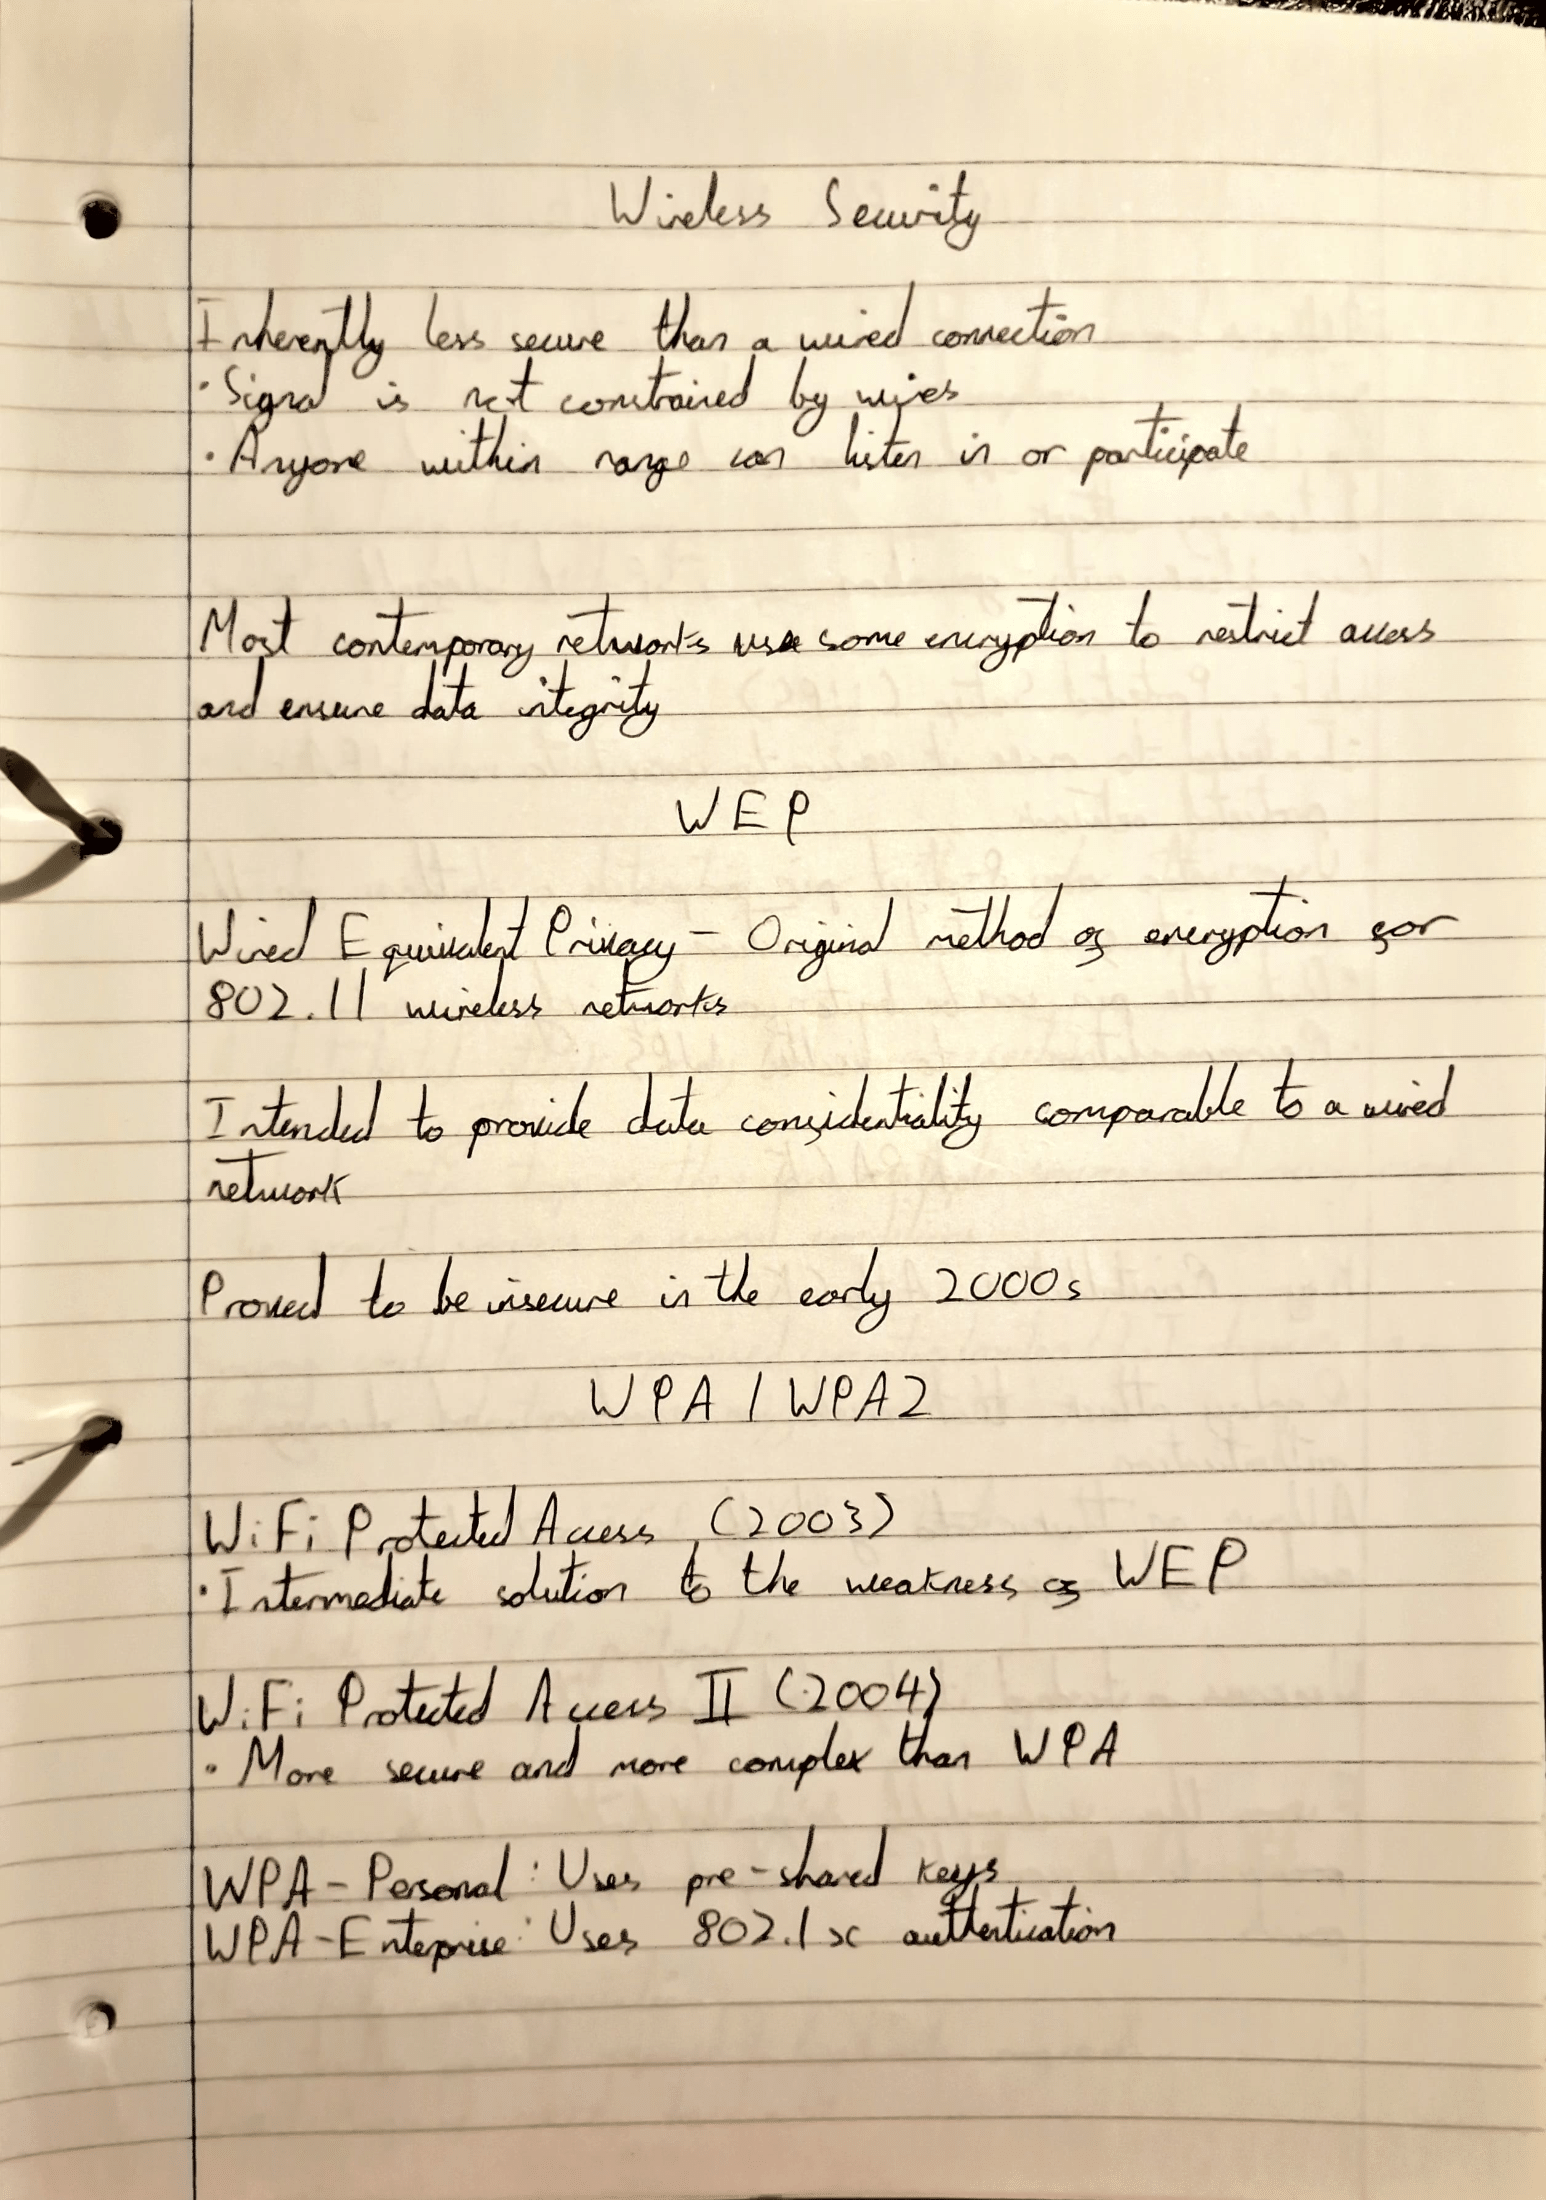 Wireless Security
Inherently less secure than a wired connection
· Signal is not constrained by wires
· Anyone within range can listen in or participate
Most contemporary networks use some encryption to restrict access
and ensure data integrity
WEP
Wired Equivalent Privacy - Original method of encryption for
802.11 wireless networks
Intended to provide data confidentiality comparable to a wired
network
Proved to be insecure in the early 2000s
WPA / WPA2
WiFi Protected Access (2003)
· Intermediate solution to the weakness of WEP
WiFi Protected Access II (2004)
· More secure and more complex than WPA
WPA-Personal: Uses pre-shared keys
WPA-Enterprise: Uses 802.1x authentication